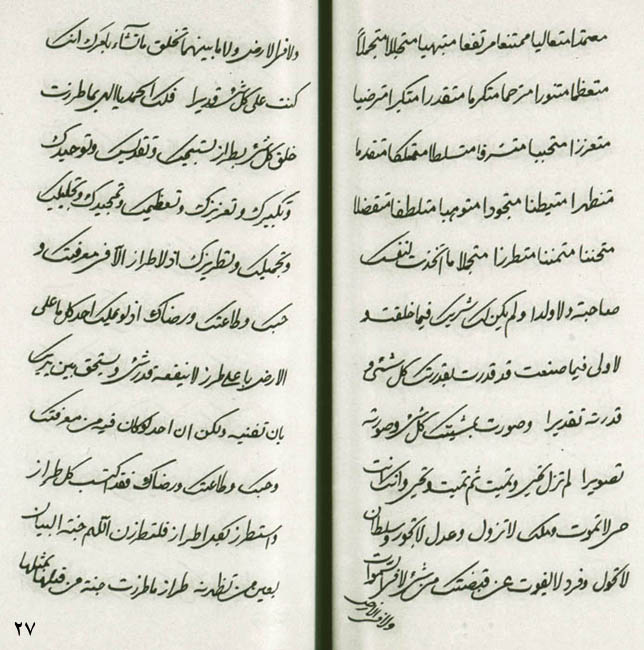 معتمدا متعاليا ممتنعا مرتفعا متبهيا متجللا متجملا
متعظما متنورا مترحما متكرما متقدرا متكبرا مترضيا
متعززا متحببا متشرفا متسلطا متملكا متقدما
متظهرا متبطنا متجودا متوهبا متلطفا متفضلا
متحننا متمننا متطرزا متجلا ما اتخذت لنفسك
صاحبة ولا ولدا ولم يكن لك شريك فيما خلقت و
لا ولي فيما صنعت قد قدرت بقدرتك كل شيء و
قدرته تقديرا وصورت بمشيتك كل شيء وصورته
تصويرا لم تزل تحيي وتميت ثم تميت وتحيي وانك انت
حي لا تموت وملك لا تزول وعدل لا تجور وسلطان
لا تحول وفرد لا يفوت عن قبضتك من شيء لا في السموات
ولا في الارض
ولا في الارض ولا ما بينهما تخلق ما تشاء بامرك انك
كنت على كل شيء قديرا فلك الحمد يا الهي بما طرزت
خلق كل شيء بطراز تسبيحك وتقديسك وتوحيدك
وتكبيرك وتعزيزك وتعظيمك وتمجيدك وتجليلك
وتجميلك وتطريزك اذ لا طراز الا في معرفتك و
حبك وطاعتك ورضاك اذ لو يملك احد كل ما على
الارض باعلى طرز لا ينفعه قدر شيء ويستحق بين يديك
بان تفنيه ولكن ان احد لو كان فيه من معرفتك
وحبك وطاعتك ورضاك فقد اكتسب كل طراز
واستطرز بكل طراز فلتطرزن اللهم جنة البيان
بعين من تظهرنه طراز ما طرزت جنة من قبلها بمثلها
٢٧